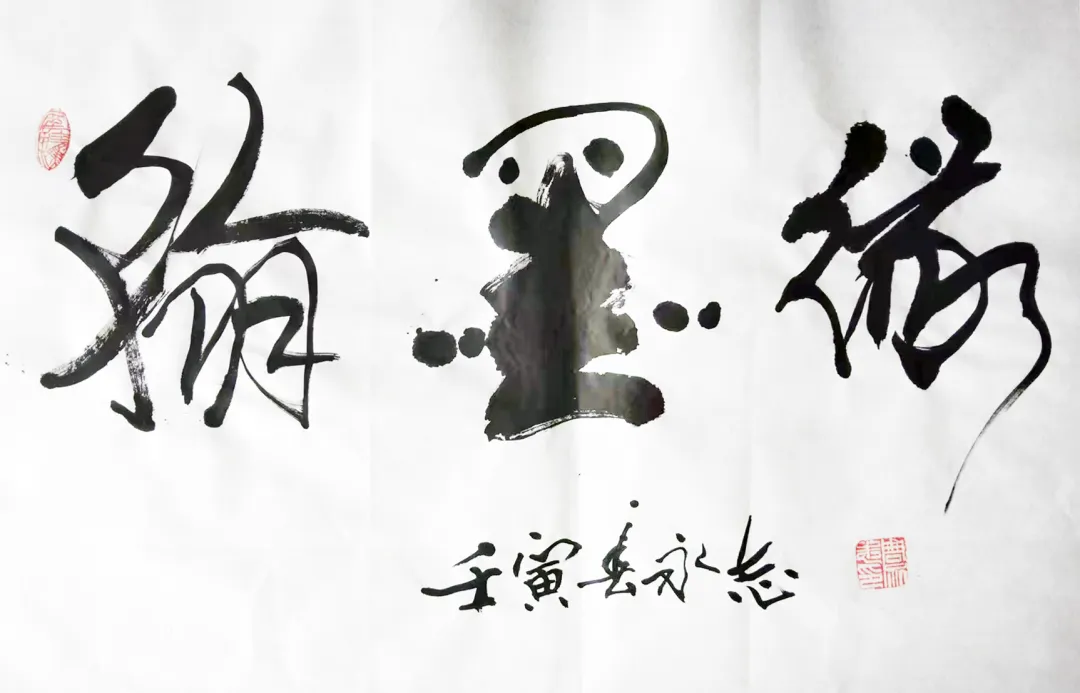 翰墨缘
壬寅春永志